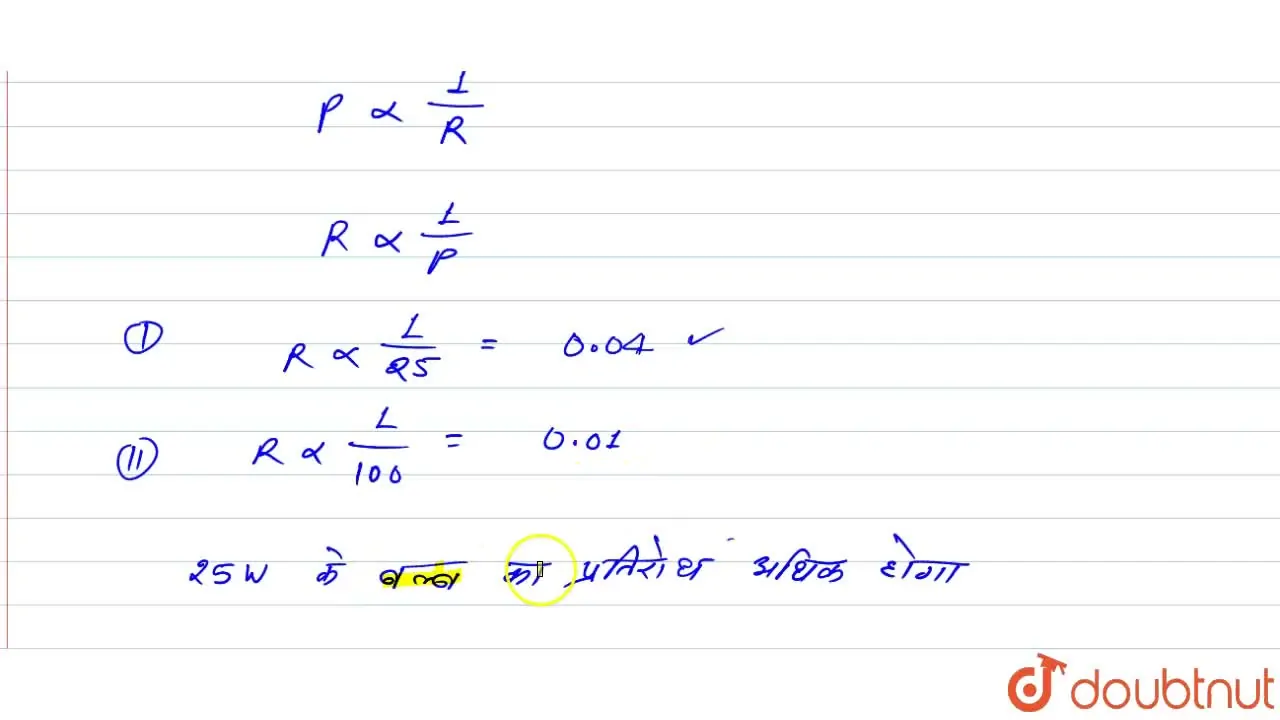 P ∝ 1/R
R ∝ 1/P
I R ∝ 1/25 = 0.04 ✓
II R ∝ 1/100 = 0.01
25W के बल्ब का प्रतिरोध अधिक होगा
doubtnut